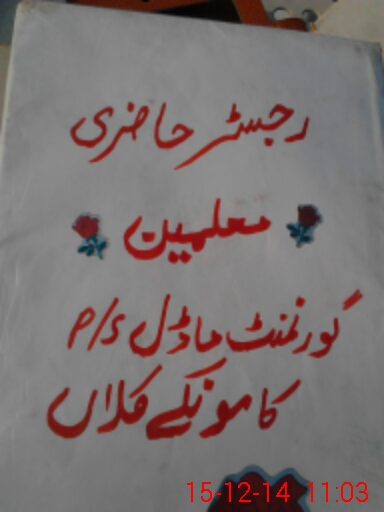 رجسٹر حاضری
معلمین
گورنمنٹ ماڈل P/S
کامونکے کلاں
15-12-14 11:03